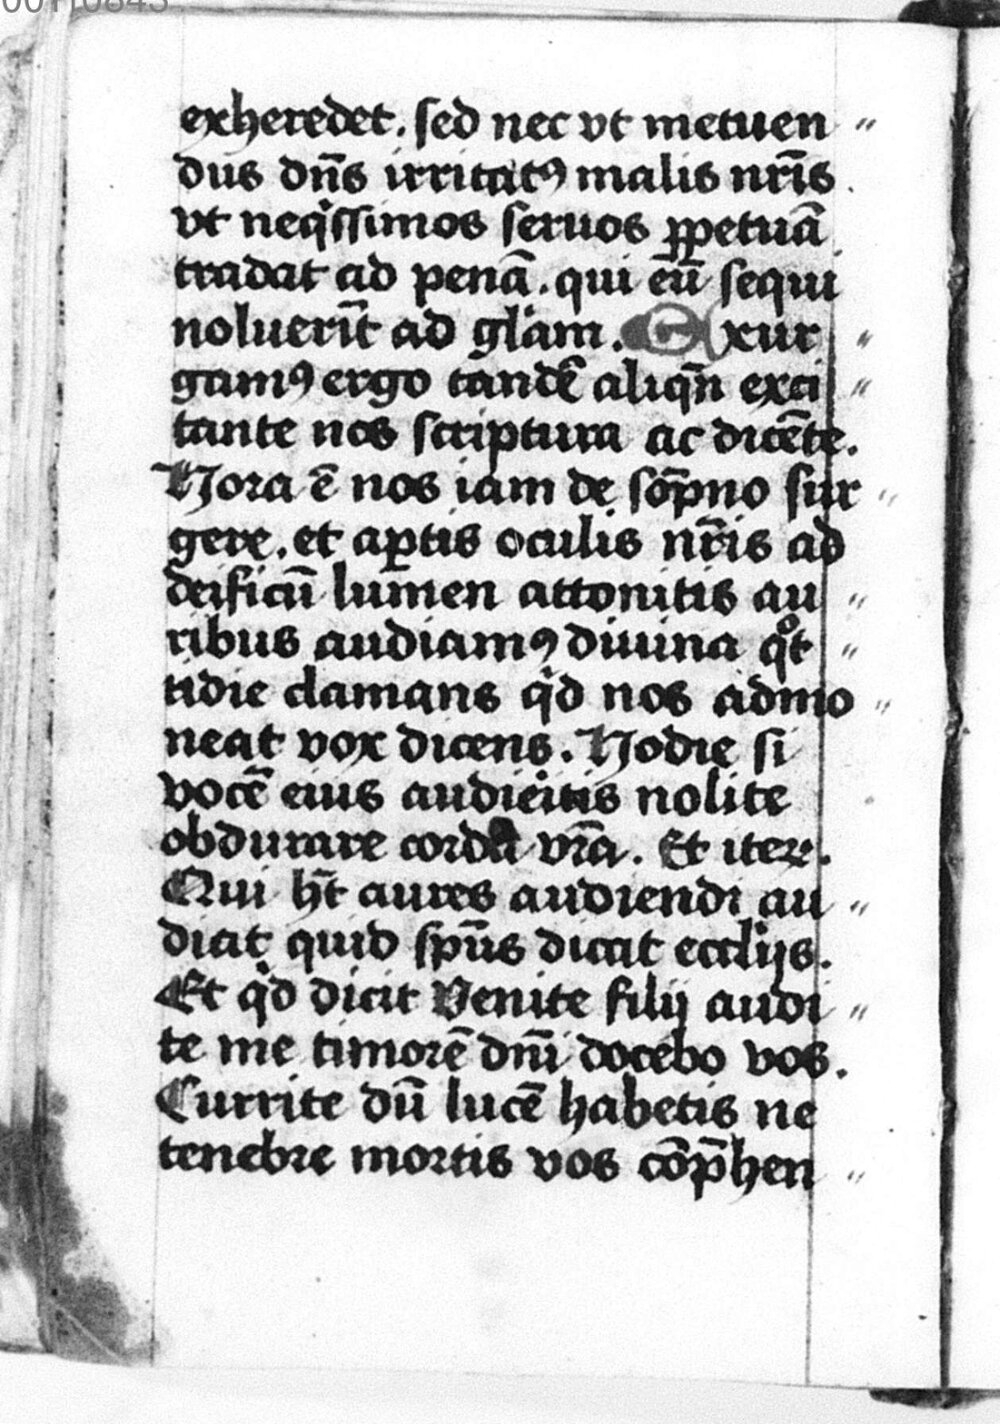 exheredet. sed nec vt metuen〃
dus dn̄s irritatꝰ malis nr̄is.
vt neqͥssimos seruos ꝑpetuā
tradat ad penā. qui eū sequi
noluerīt ad glām. Exur〃
gamꝰ ergo tandē aliqn̄ exci〃
tante nos scriptura ac dicēte.
Hora ē nos iam de sōpno sur〃
gere. et aꝑtis oculis nr̄is ad
deificū lumen attonitis au〃
ribus audiamꝰ diuina qͦt〃
tidie clamans qͥd nos admo〃
neat vox dicens. Hodie si
vocē eius audieͥtis nolite
obdurare corda vr̄a. Et iteꝝ.
Qui hȶ aures audiendi au〃
diat quid sp̄us dicat eccl̄ijs.
Et qͥd dicit Venite filij audi〃
te me timorē dn̄i docebo vos.
Currite dū lucē habetis ne
tenebre mortis vos cōp̄hen〃